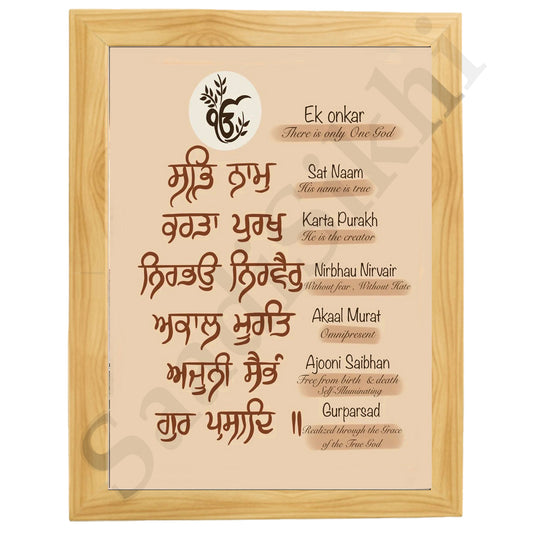 ੴ
Ek onkar
There is only One God
ਸਤਿ ਨਾਮੁ
Sat Naam
His name is true
ਕਰਤਾ ਪੁਰਖੁ
Karta Purakh
He is the creator
ਨਿਰਭਉ ਨਿਰਵੈਰੁ
Nirbhau Nirvair
Without fear , Without Hate
ਅਕਾਲ ਮੂਰਤਿ
Akaal Murat
Omnipresent
ਅਜੂਨੀ ਸੈਭੰ
Ajooni Saibhan
Free from birth & death
Self-Illuminating
ਗੁਰ ਪ੍ਰਸਾਦਿ ॥
Gurparsad
Realized through the Grace
of the True God
SandliSikhi